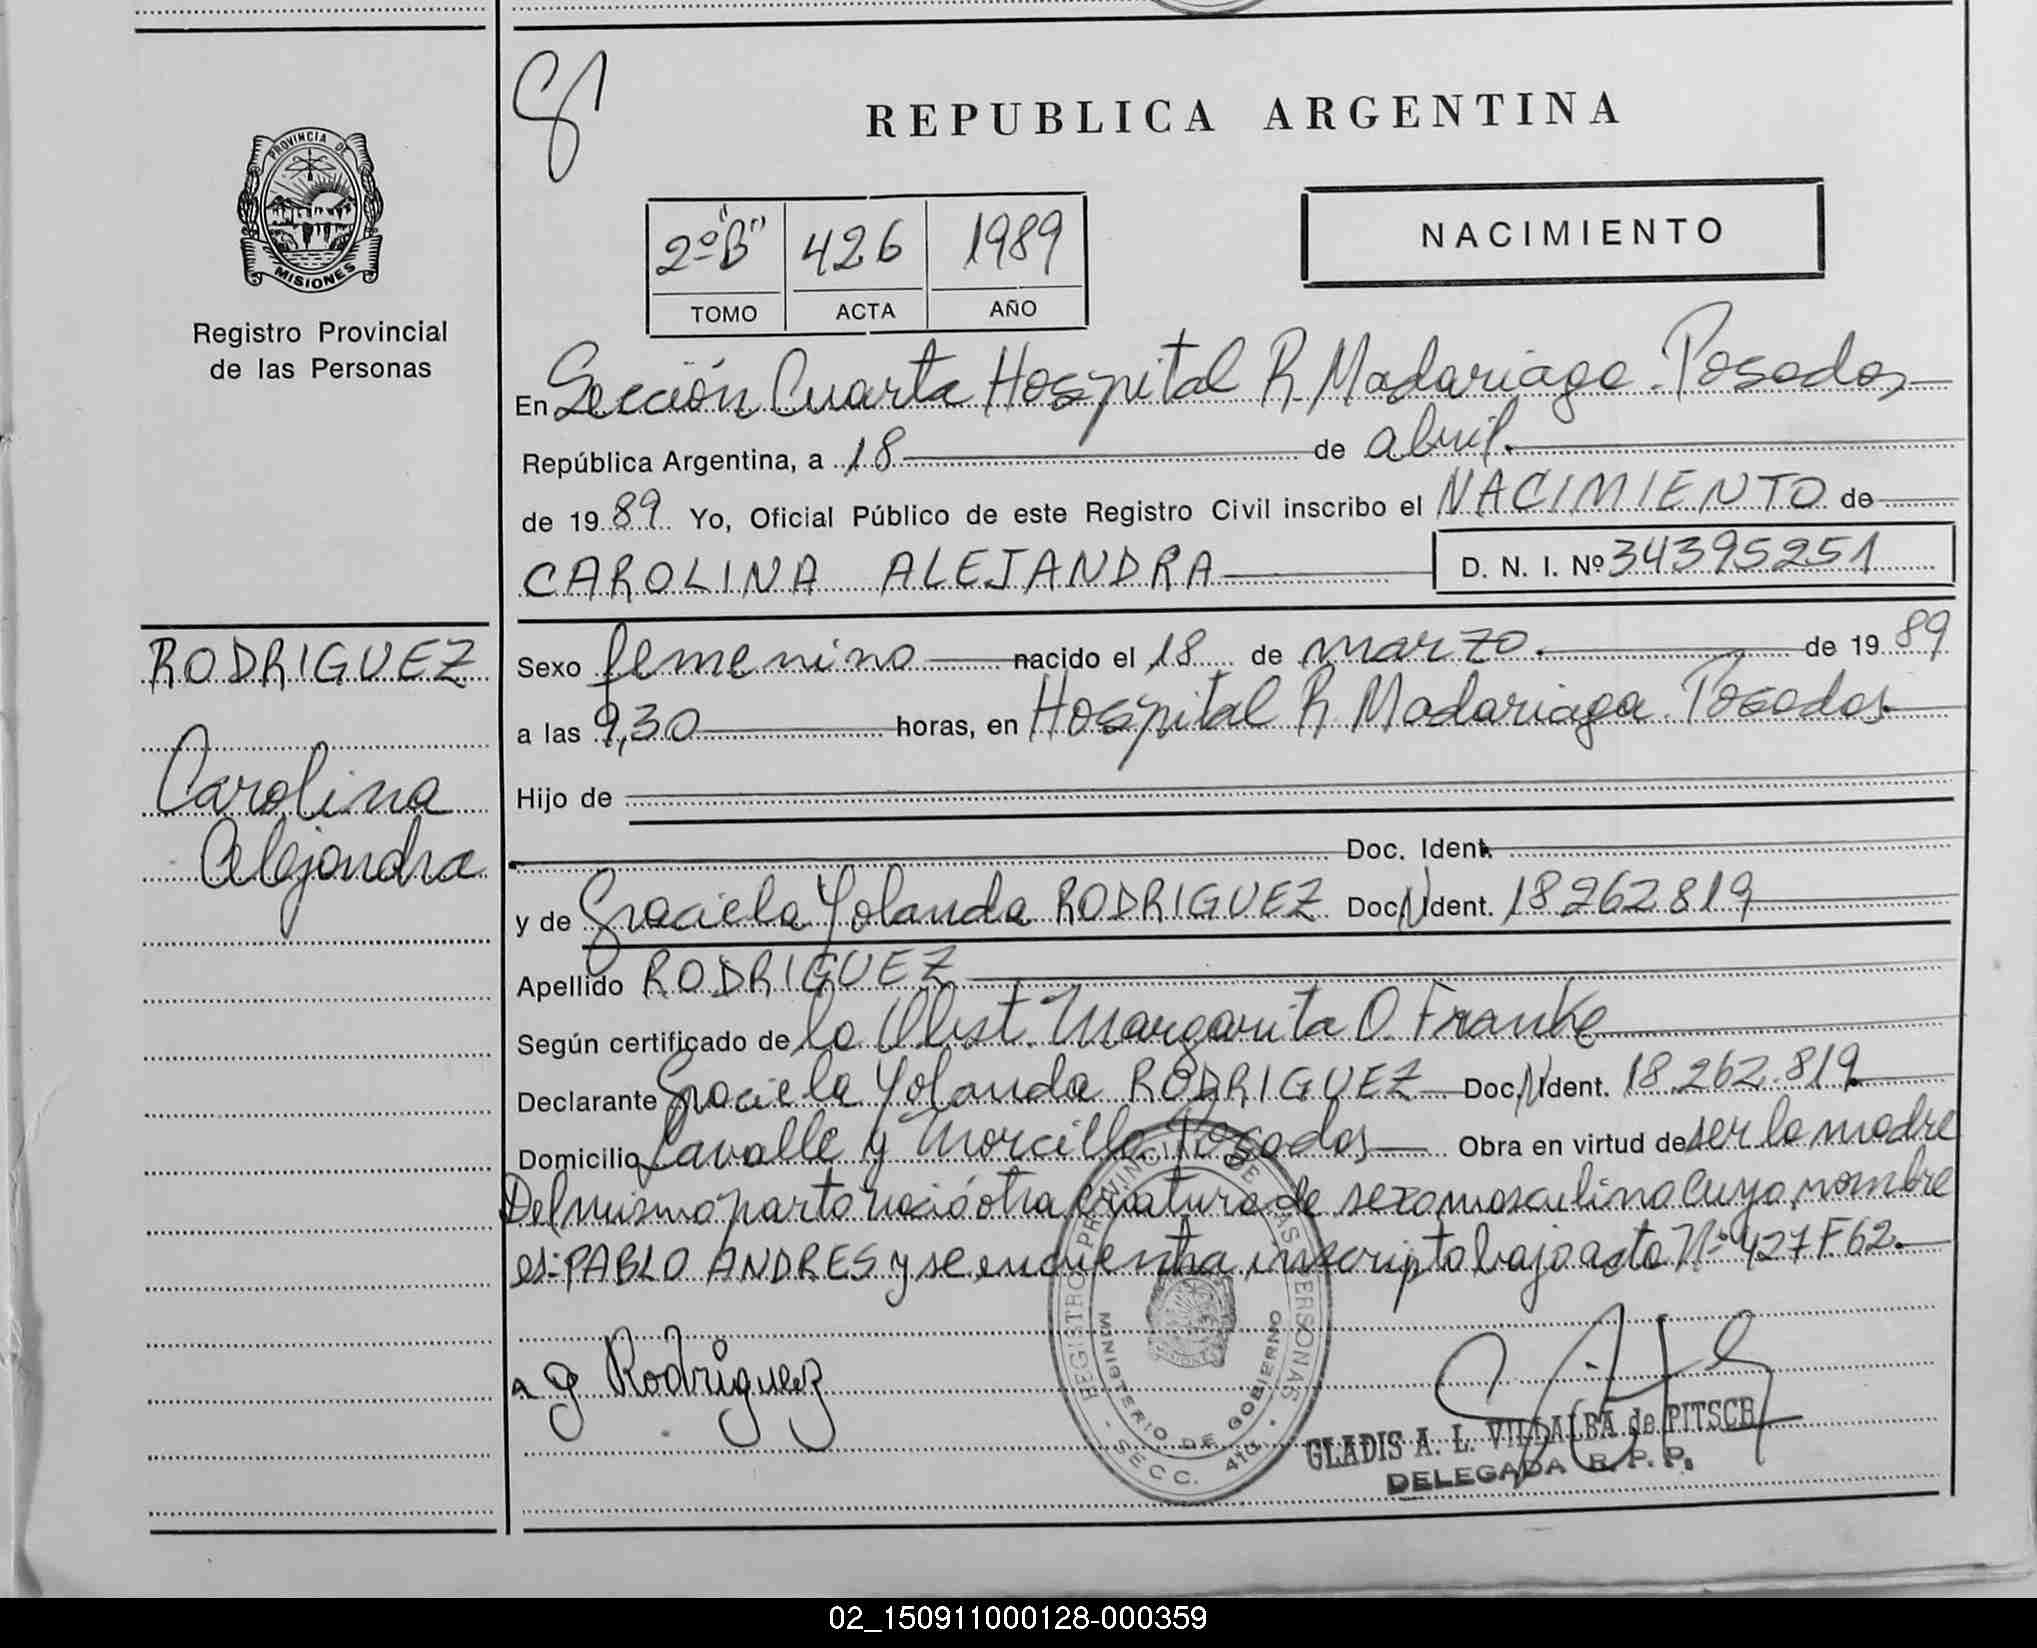 REPUBLICA ARGENTINA
PROVINCIA DE
MISIONES
Registro Provincial
de las Personas
2º "B" 426 1989
TOMO ACTA AÑO
NACIMIENTO
En Sección Cuarta Hospital R. Madariaga. Posadas
República Argentina, a 18 de abril.
de 1989 Yo, Oficial Público de este Registro Civil inscribo el NACIMIENTO de
CAROLINA ALEJANDRA D. N. I. Nº 34395251
RODRIGUEZ
Carolina
Alejandra
Sexo femenino nacido el 18 de marzo. de 1989
a las 9,30 horas, en Hospital R. Madariaga. Posadas.
Hijo de
Doc. Ident.
y de Graciela Yolanda RODRIGUEZ Doc. Ident. 18262819
Apellido RODRIGUEZ
Según certificado de la Obst. Margarita O. Franke
Declarante Graciela Yolanda RODRIGUEZ Doc. Ident. 18.262.819
Domicilio Lavalle y Morcillo Posadas Obra en virtud de ser la madre
Del mismo parto nació otra criatura de sexo masculino cuyo nombre
es: PABLO ANDRES y se encuentra inscripto bajo acta Nº 427 F 62.
g Rodriguez
REGISTRO PROVINCIAL DE LAS PERSONAS
MINISTERIO DE GOBIERNO
SECC. 4ta.
GLADIS A. L. VILLALBA de PITSCH
DELEGADA R. P. P.
02_150911000128-000359